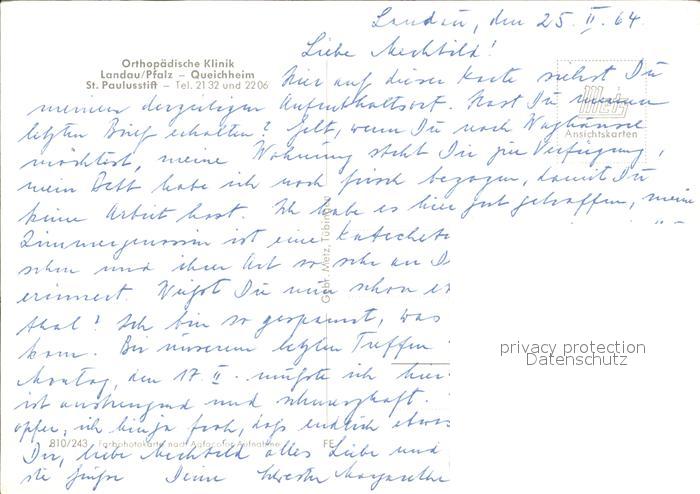 Landau, den 25. II. 64.
Liebe Mechtild!
Orthopädische Klinik
Landau/Pfalz – Queichheim
St. Paulusstift – Tel. 21 32 und 22 06
Hier auf dieser Karte siehst Du
meinen derzeitigen Aufenthaltsort. Hast Du meinen
Metz
letzten Brief erhalten? Gelt, wenn Du nach Waghäusel
Ansichtskarten
möchtest, meine Wohnung steht Dir zur Verfügung,
mein Bett habe ich noch frisch bezogen, damit Du
keine Arbeit hast. Ich habe es hier gut getroffen, meine
Zimmergenossin ist eine Katechet
und ihrer Art so sehr an D
erinnert. Weißt Du nun schon et
Ahal? Ich bin so gespannt, was
kam. Bei unserem letzten Treffen
Montag, den 17. II. mußte ich hier
ist anstrengend und schmerzhaft.
opfer, ich bin ja froh, daß endlich etwas
Dir, liebe Mechtild alles Liebe und
die Grüße Deine Schwester Margarethe
Gebr. Metz, Tübingen
810/243 Farbphotokarte nach Agfacolor-Aufnahme
FE
privacy protection
Datenschutz